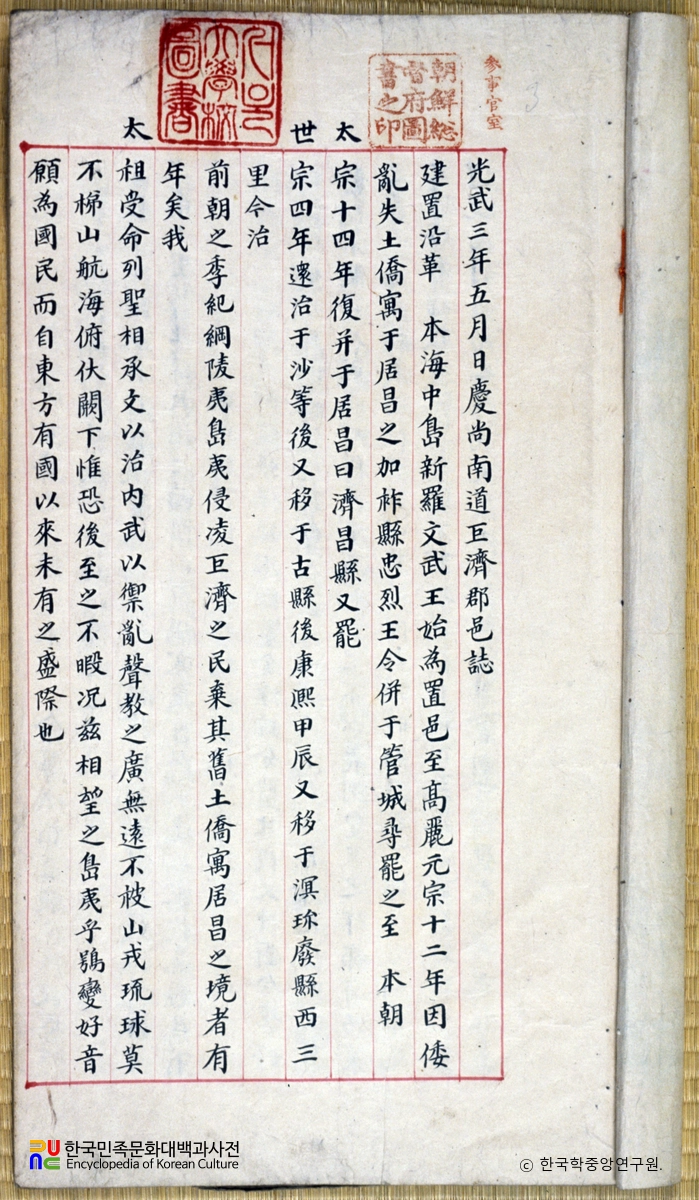 光武三年五月日慶尚南道巨濟郡邑誌
建置沿革 本海中島新羅文武王始為置邑至髙麗元宗十二年因倭
亂失土僑寓于居昌之加祚縣忠烈王令併于管城尋罷之至 本朝
太
宗十四年復并于居昌曰濟昌縣又罷
世
宗四年還治于沙等後又移于古縣後康熙甲辰又移于溟珎廢縣西三
里今治
前朝之季紀綱陵夷島夷侵凌巨濟之民棄其舊土僑寓居昌之境者有
年矣我
太
祖受命列聖相承文以治内武以禦亂聲教之廣無遠不被山戎琉球莫
不梯山航海俯伏闕下惟恐後至之不暇况茲相望之島夷乎鴞變好音
願為國民而自東方有國以來未有之盛際也
參事官室
朝鮮総
督府圖
書之印
大學校
圖書
3
한국민족문화대백과사전
Encyclopedia of Korean Culture
ⓒ 한국학중앙연구원.